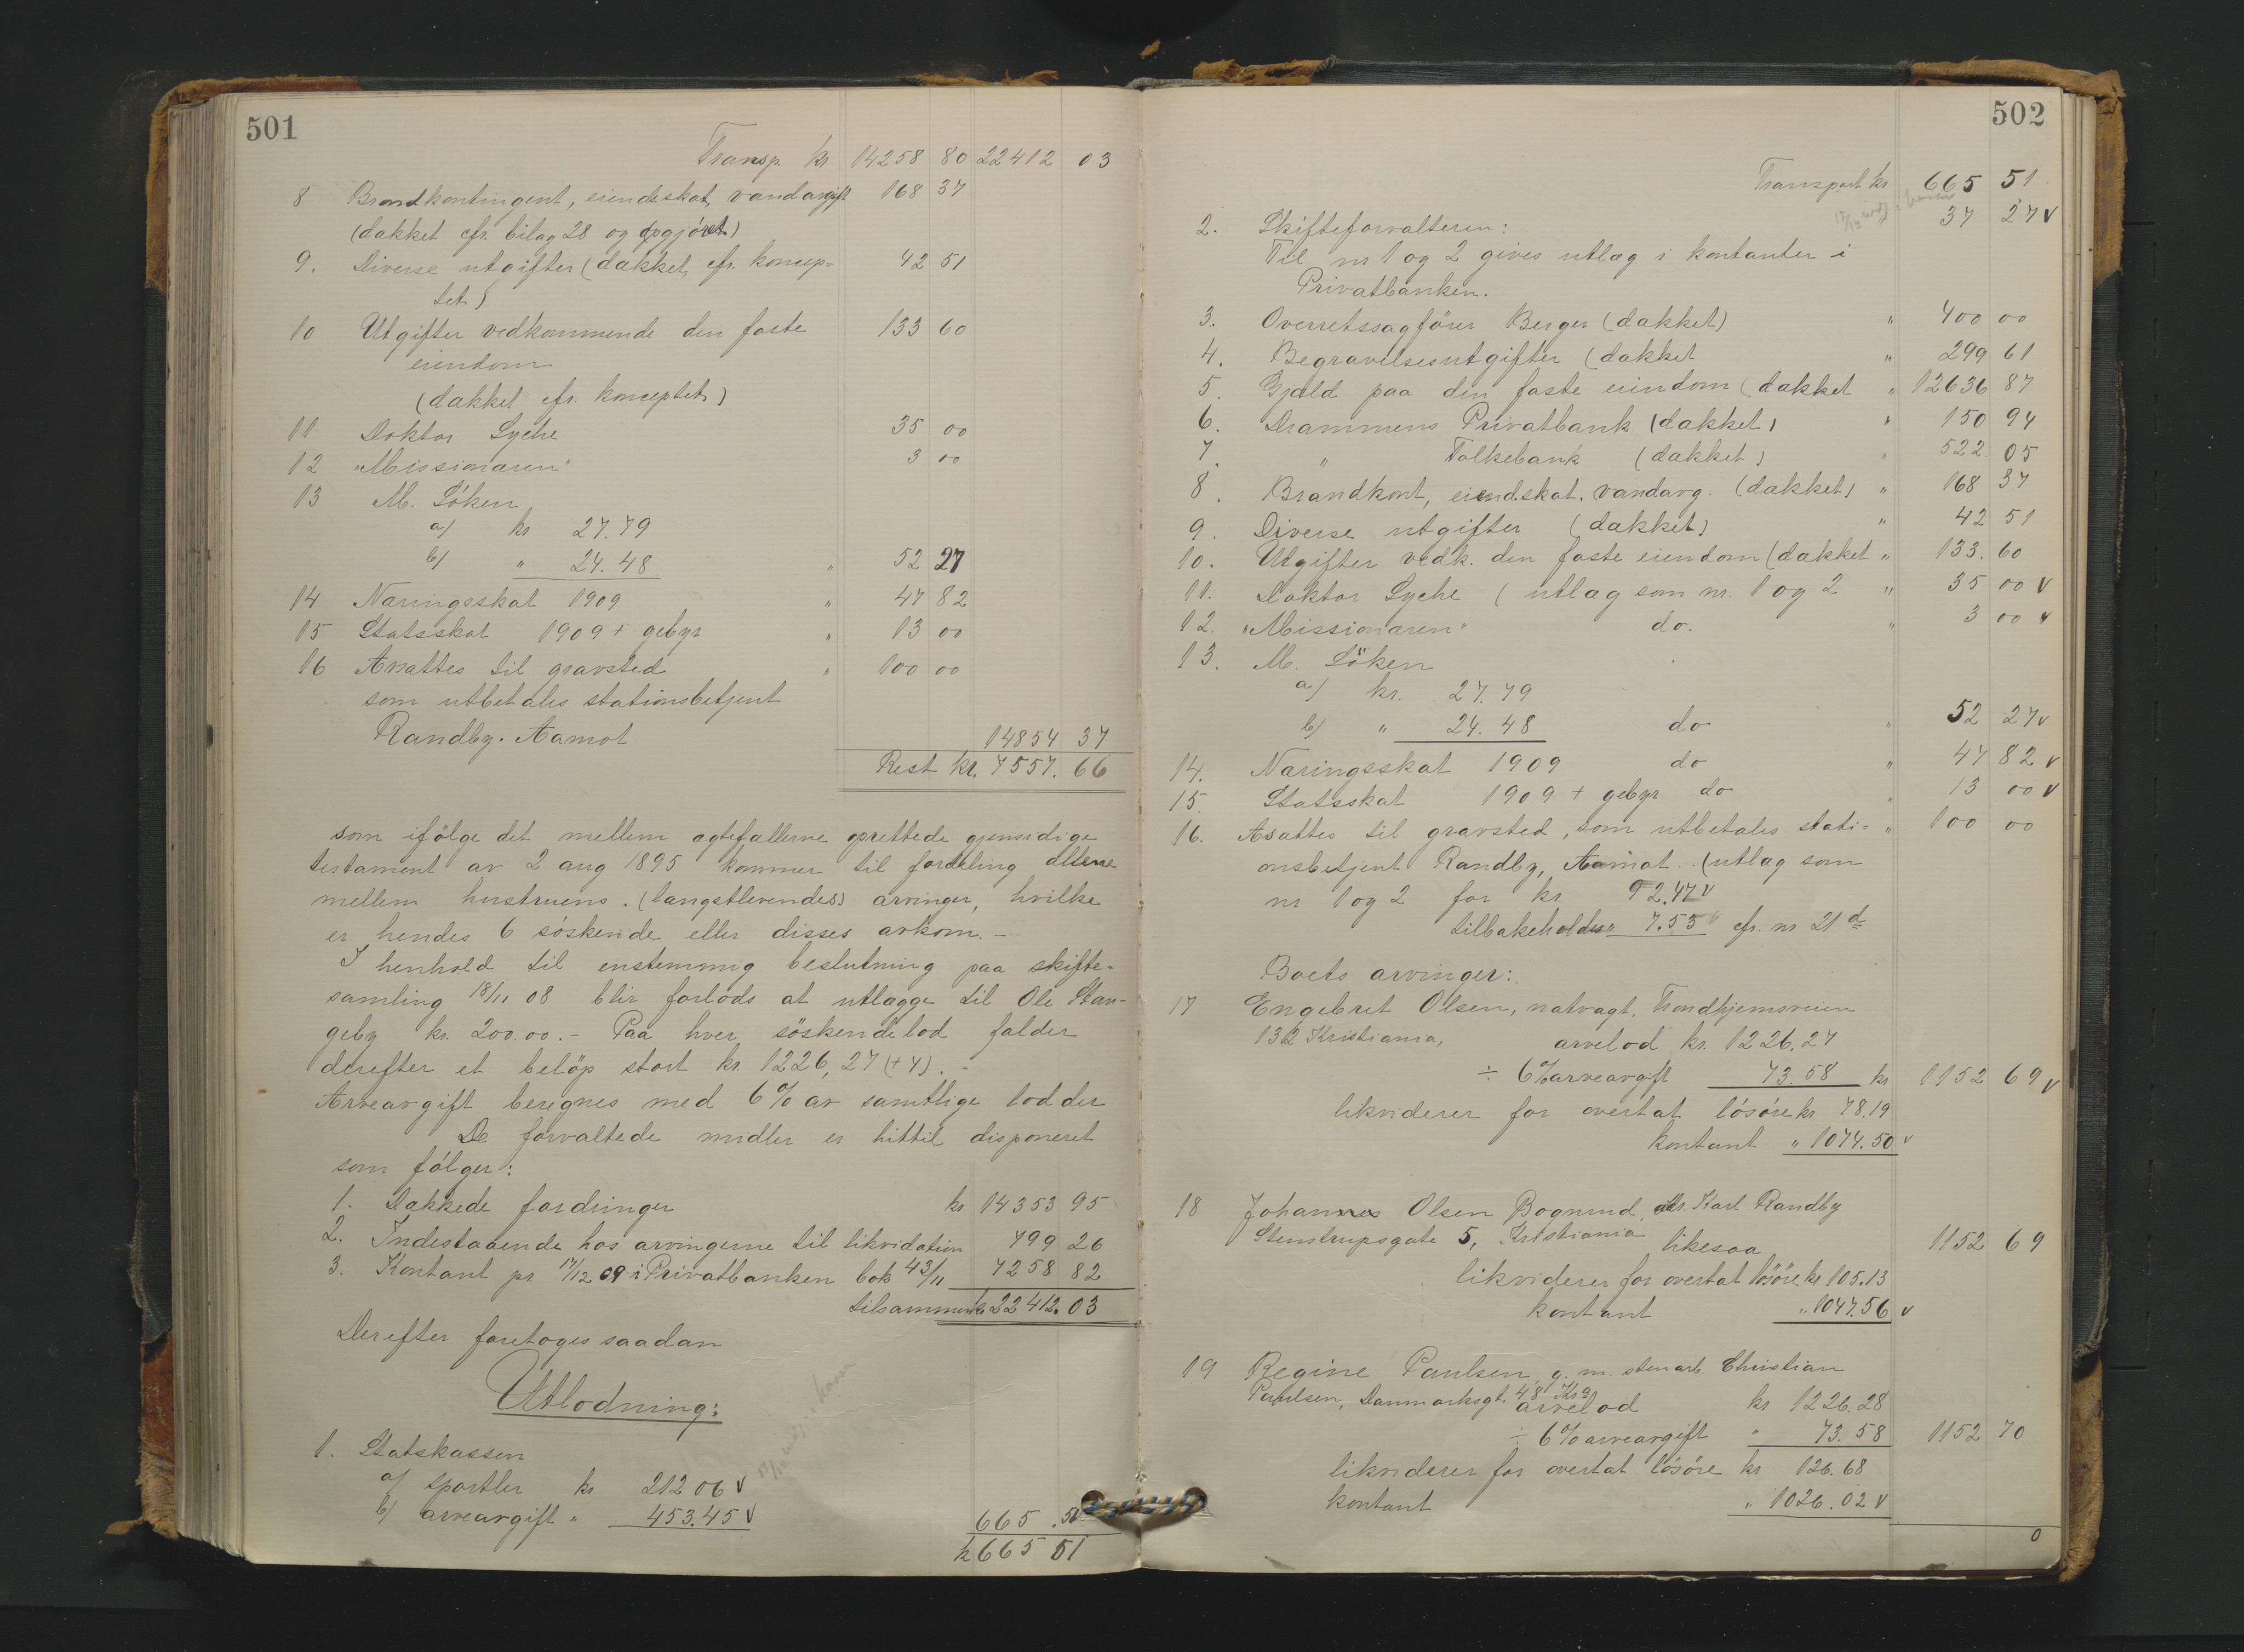 501
Transp. kr 14258 80 22412 03
8 Brandkontingent, eiendskat, vandavgift 168 37
(dækket cfr. bilag 28 og opgjöret)
9. Diverse utgifter (dækket, cfr. koncep= 42 51
tet)
10 Utgifter vedkommende den faste 133 60
eiendom
(dækket cfr. konceptet)
11 Doktor Lyche 35 00
12 "Missionæren" 3 00
13 M. Söken
a) kr 27.79
b) " 24.48 " 52 27
14 Næringsskat 1909 " 47 82
15 Statsskat 1909 + gebyr " 13 00
16 Avsættes til gravsted " 100 00
som utbetales stationsbetjent
Randby. Aamot 14854 37
Rest kr. 7557.66
som ifölge det mellem egtefællerne oprettede gjensidige
testament av 2 aug 1895 kommer til fordeling alene
mellem hustruens (længstlevendes) arvinger, hvilke
er hendes 6 söskende eller disses avkom. -
I henhold til enstemmig beslutning paa skifte=
samling 18/11 08 blir forlods at utlægge til Ole Stan-
geby kr. 200.00. - Paa hver söskendelod falder
derefter et belöp stort kr. 1226,27 (+4). -
Arveavgift beregnes med 6% av samtlige lodder
De forvaltede midler er hittil disponeret
som fölger:
1. Dækkede fordringer kr 14353 95
2. Indestaaende hos arvingerne til likvidation 799 26
3. Kontant pr 17/12 09 i Privatbanken bok 43/11 7258 82
tilsammen kr 22412.03
Derefter foretoges saadan
Utlodning:
1. Statskassen
a) sportler kr 212 06 v
b) arveavgift " 453.45 v 665.51
kr 665 51
502
Transport kr 665 51
2. Skifteforvalteren: 37 27 v
Til nr 1 og 2 gives utlæg i kontanter i
Privatbanken.
3. Overretssagförer Berger (dækket) " 400 00
4. Begravelsesutgifter (dækket " 299 61
5. Gjæld paa den faste eiendom (dækket " 12636 87
6. Drammens Privatbank (dækket) " 150 94
7. " Folkebank (dækket) " 522 05
8. Brandkont, eiendskat, vandavg. (dækket) " 168 37
9. Diverse utgifter (dækket) " 42 51
10. Utgifter vedk. den faste eiendom (dækket " 133.60
11. Doktor Lyche (utlæg som nr. 1 og 2 " 35 00 v
12. "Missionæren" do. " 3 00 v
13. M. Söken
a) kr. 27.79
b) " 24.48 do " 52 27 v
14. Næringsskat 1909 do " 47 82 v
15. Statsskat 1909 + gebyr do " 13 00 v
16. Avsattes til gravsted, som utbetales stati= " 100 00
onsbetjent Randby, Aamot. (utlæg som
nr 1 og 2 for kr. 92.47 v
tilbakeholdes " 7.53 cfr. nr 21 d
Boets arvinger:
17 Engebret Olsen, natvagt, Trondhjemsveien
132 Kristiania, arvelod kr. 1226.27
÷ 6% arveavgift 73.58 kr 1152 69 v
likviderer for overtat lösöre kr 78.19
kontant " 1074.50 v
18 Johannes Olsen Bognrud, adr. Karl Randby
Stenstrupsgate 5, Kristiania likesaa 1152 69
likviderer for overtat lösöre kr 105.13
kontant " 1047.56 v
19 Regine Paulsen, g. m. stenarb. Christian
Paulsen, Danmarksgt. 48 Kra arvelod kr 1226.28
÷ 6% arveavgift " 73.58 1152 70
likviderer for overtat lösöre kr 126.68
kontant " 1026.02 v
0